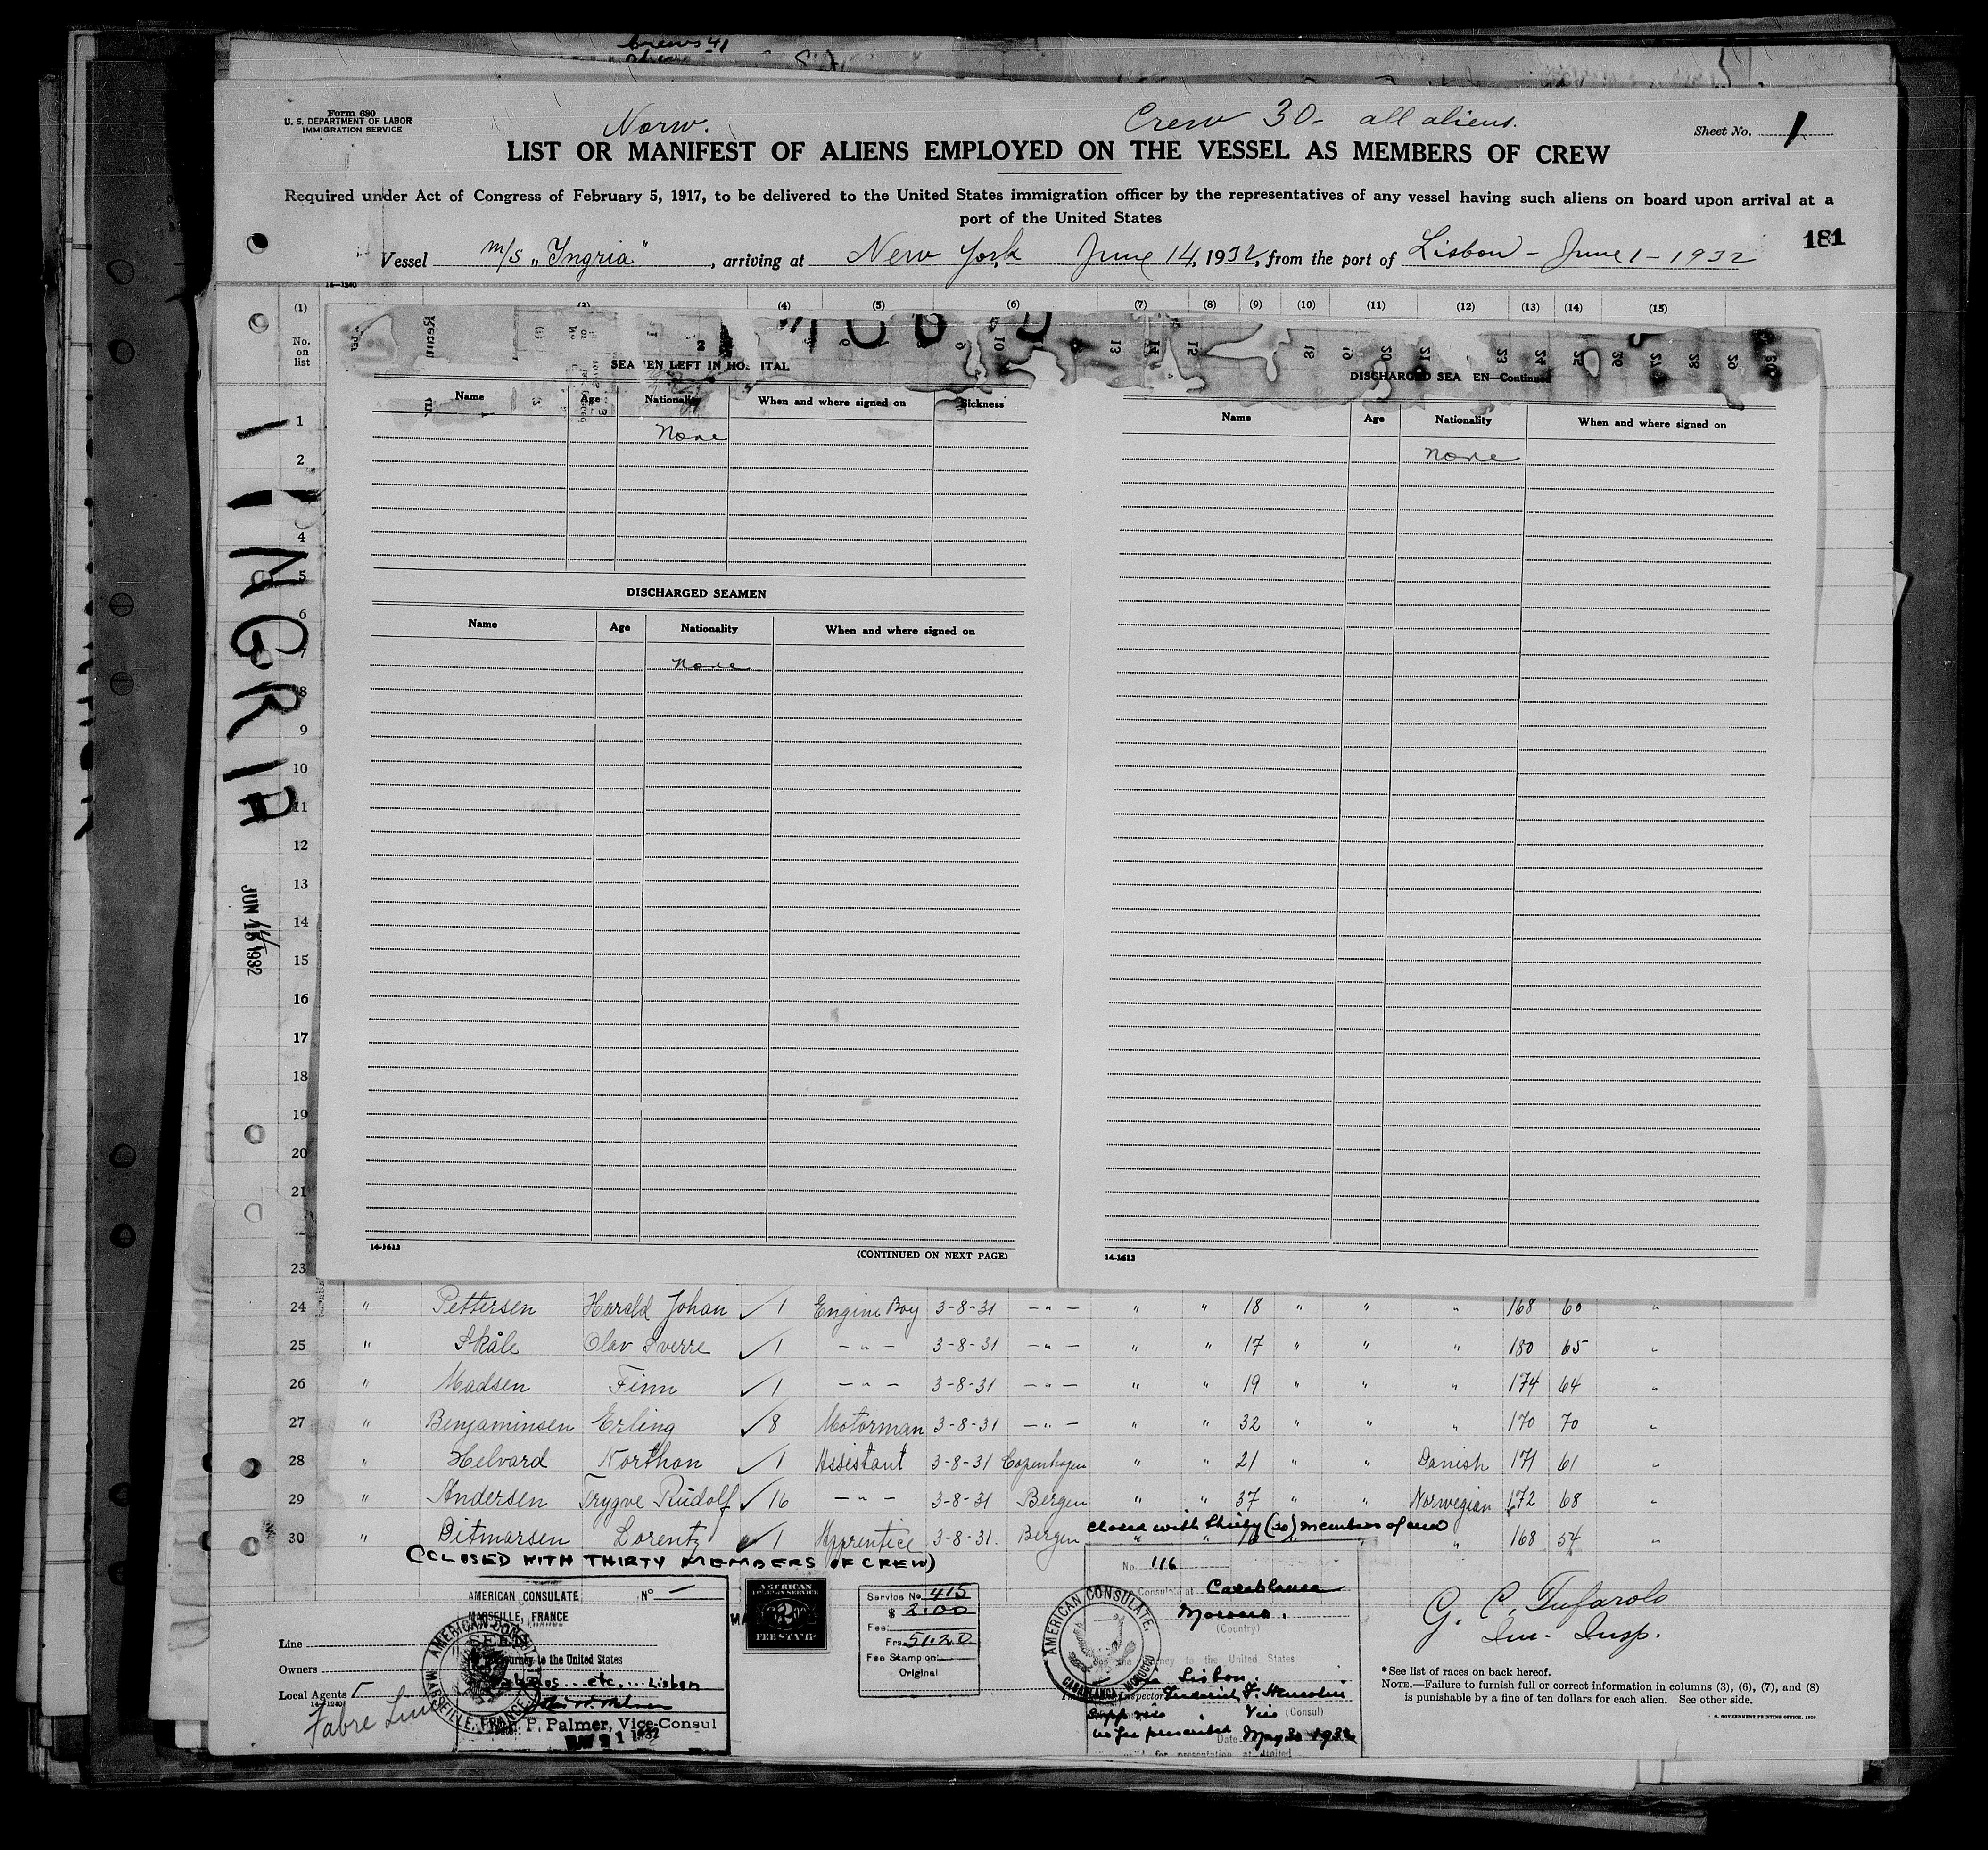 crews 41
Form 680
U. S. DEPARTMENT OF LABOR
IMMIGRATION SERVICE
Norw.
Crew 30 - all aliens.
Sheet No. 1
LIST OR MANIFEST OF ALIENS EMPLOYED ON THE VESSEL AS MEMBERS OF CREW
Required under Act of Congress of February 5, 1917, to be delivered to the United States immigration officer by the representatives of any vessel having such aliens on board upon arrival at a
port of the United States
181
Vessel m/s „Ingria", arriving at New York June 14, 1932, from the port of Lisbon - June 1 - 1932
14-1240
(1) (3) (4) (5) (6) (7) (8) (9) (10) (11) (12) (13) (14) (15)
No.
on
list
INGRIA
JUN 1932
SEA EN LEFT IN HOS ITAL
Name Age Nationality When and where signed on Sickness
None
DISCHARGED SEAMEN
Name Age Nationality When and where signed on
None
14-1613
(CONTINUED ON NEXT PAGE)
DISCHARGED SEA EN—Continued
Name Age Nationality When and where signed on
None
14-1613
1
2
4
5
6
7
8
9
10
11
12
13
14
15
16
17
18
19
20
21
23
24 " Pettersen Harald Johan ✓ 1 Engine Boy 3-8-31 — " — " " 18 " " " 168 60 "
25 " Skåle Olav Sverre ✓ 1 — " — 3-8-31 — " — " " 17 " " " 180 65 "
26 " Madsen Finn ✓ 1 — " — 3-8-31 — " — " " 19 " " " 174 64 "
27 " Benjaminsen Erling ✓ 8 Motorman 3-8-31 — " — " " 32 " " " 170 70 "
28 " Helvard Northon ✓ 1 Assistant 3-8-31 Copenhagen " " 21 " " Danish 171 61 "
29 " Andersen Trygve Rudolf ✓ 16 — " — 3-8-31 Bergen " " 37 " " Norwegian 172 68 "
closed with thirty (30) members of crew
30 " Ditmarsen Lorentz ✓ 1 Apprentice 3-8-31. Bergen " " " " 168 54 "
(CLOSED WITH THIRTY MEMBERS OF CREW)
AMERICAN CONSULATE No —
MARSEILLE, FRANCE
SEEN
journey to the United States
etc... Lisbon
P. Palmer, Vice-Consul
1932
AMERICAN CONSULATE
MARSEILLE, FRANCE
Line
Owners
Local Agents
14-1240
Fabre Line
AMERICAN
FOREIGN SERVICE
2
FEE STAMP
Service No 415
$ 2.00
Fee:
Frs. 51.20
Fee Stamp on:
Original
No. 116
Consulate at Casablanca
Morocco.
(Country)
journey to the United States
Lisbon.
Vice (Consul)
no fee prescribed Date May 30 1932
AMERICAN CONSULATE.
CASABLANCA, MOROCCO
G. C. Tufarolo
Im. Insp.
*See list of races on back hereof.
NOTE.—Failure to furnish full or correct information in columns (3), (6), (7), and (8)
is punishable by a fine of ten dollars for each alien. See other side.
GOVERNMENT PRINTING OFFICE. 1930